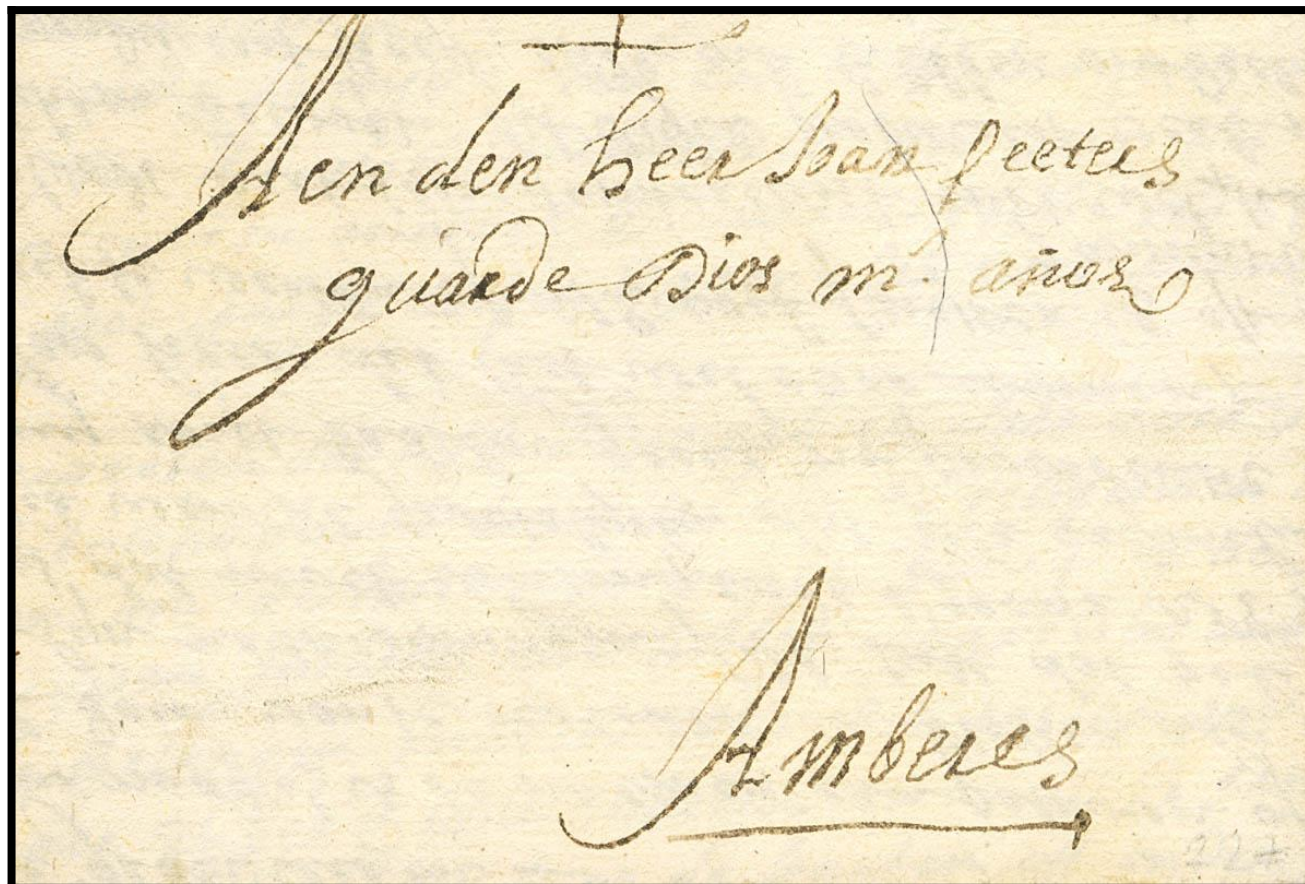 Aen den heer Joan peeters
guarde Dios m.ˢ años
Amberes